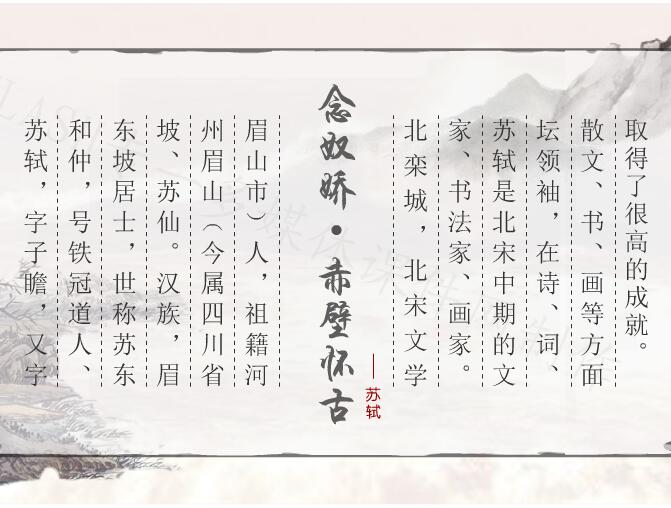 念奴娇·赤壁怀古
——苏轼
苏轼，字子瞻，又字
和仲，号铁冠道人、
东坡居士，世称苏东
坡、苏仙。汉族，眉
州眉山（今属四川省
眉山市）人，祖籍河
北栾城，北宋文学
家、书法家、画家。
苏轼是北宋中期的文
坛领袖，在诗、词、
散文、书、画等方面
取得了很高的成就。